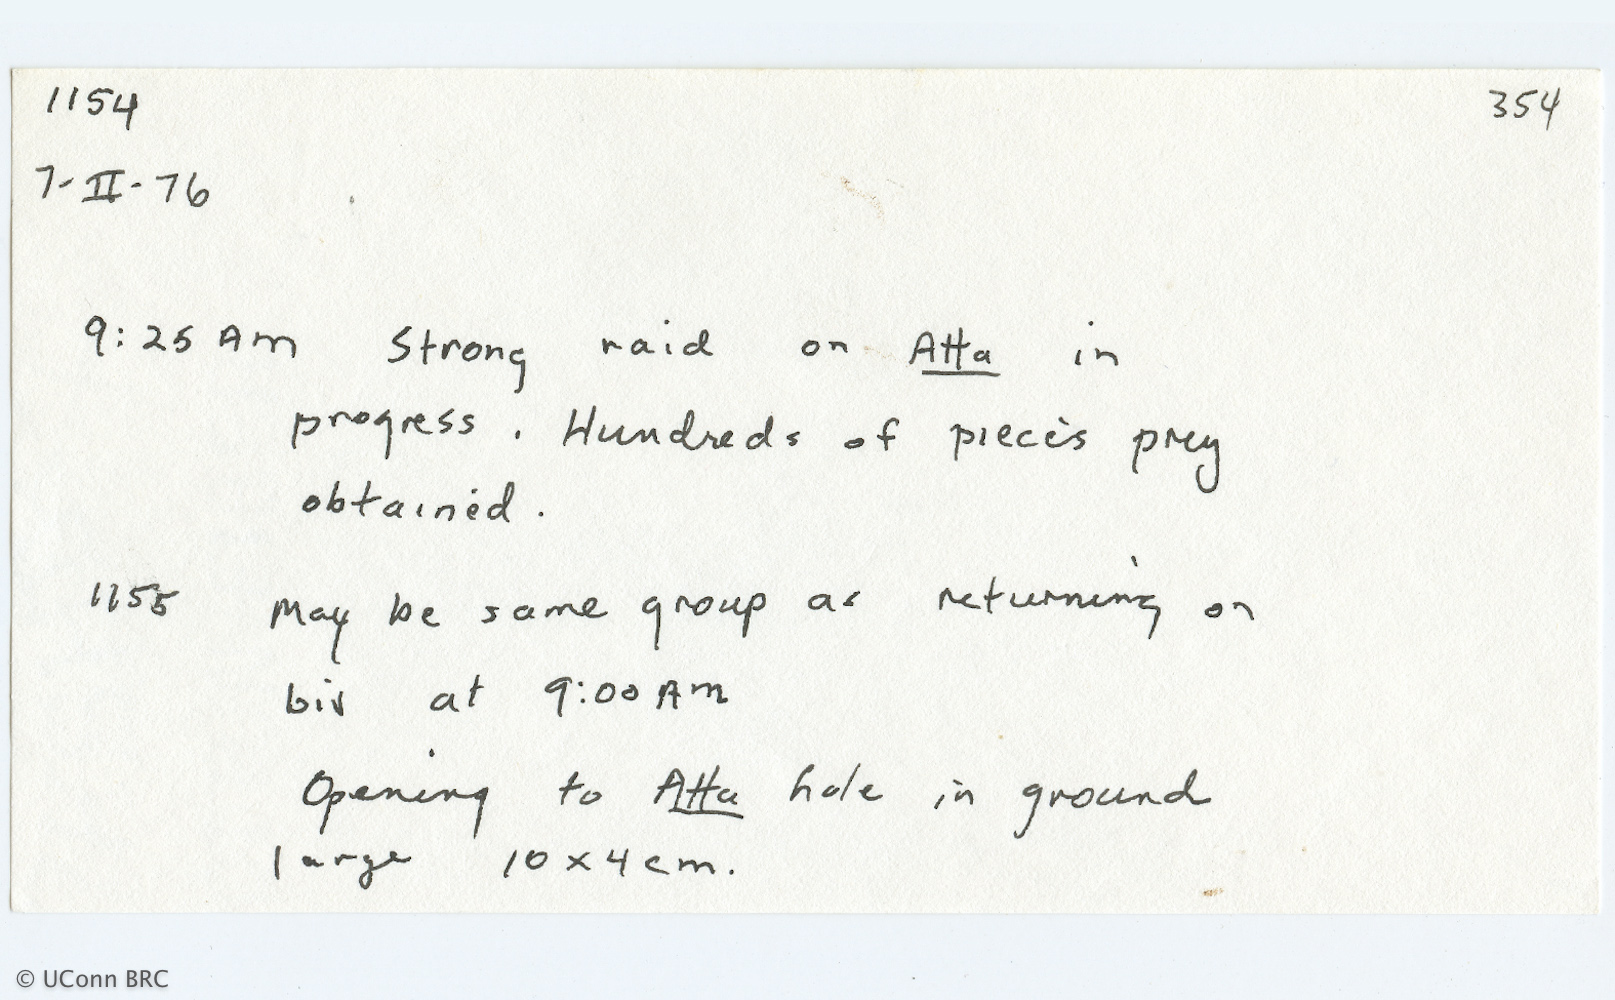 1154 354
7-II-76
9:25 AM Strong raid on Atta in
progress. Hundreds of pieces prey
obtained.
1155 May be same group as returning on
biv at 9:00 AM
Opening to Atta hole in ground
large 10 x 4 cm.
© UConn BRC